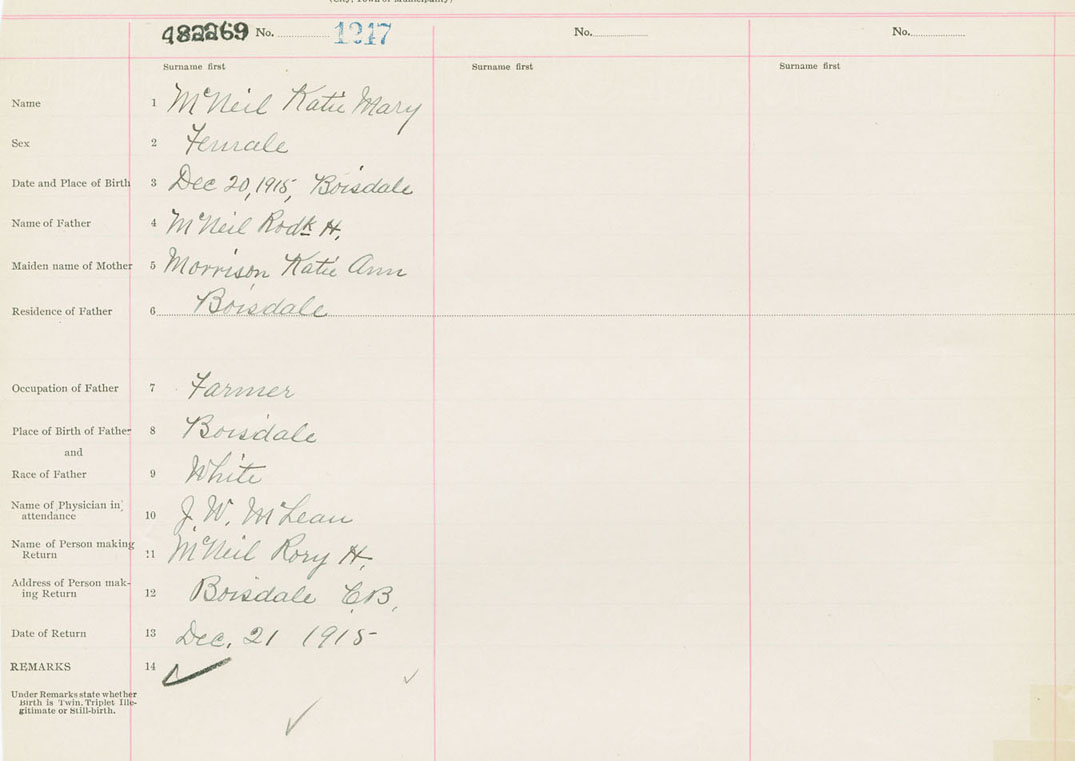 (City, Town or Municipality)
482269 No. 1217 No. No.
Surname first Surname first Surname first
Name 1 McNeil Katie Mary
Sex 2 Female
Date and Place of Birth 3 Dec 20, 1915, Boisdale
Name of Father 4 McNeil Rodk H.
Maiden name of Mother 5 Morrison Katie Ann
Residence of Father 6 Boisdale
Occupation of Father 7 Farmer
Place of Birth of Father 8 Boisdale
and
Race of Father 9 White
Name of Physician in
attendance 10 J. W. McLean
Name of Person making
Return 11 McNeil Rory H.
Address of Person mak-
ing Return 12 Boisdale C.B.
Date of Return 13 Dec. 21 1915
REMARKS 14
Under Remarks state whether
Birth is Twin. Triplet Ille-
gitimate or Still-birth.